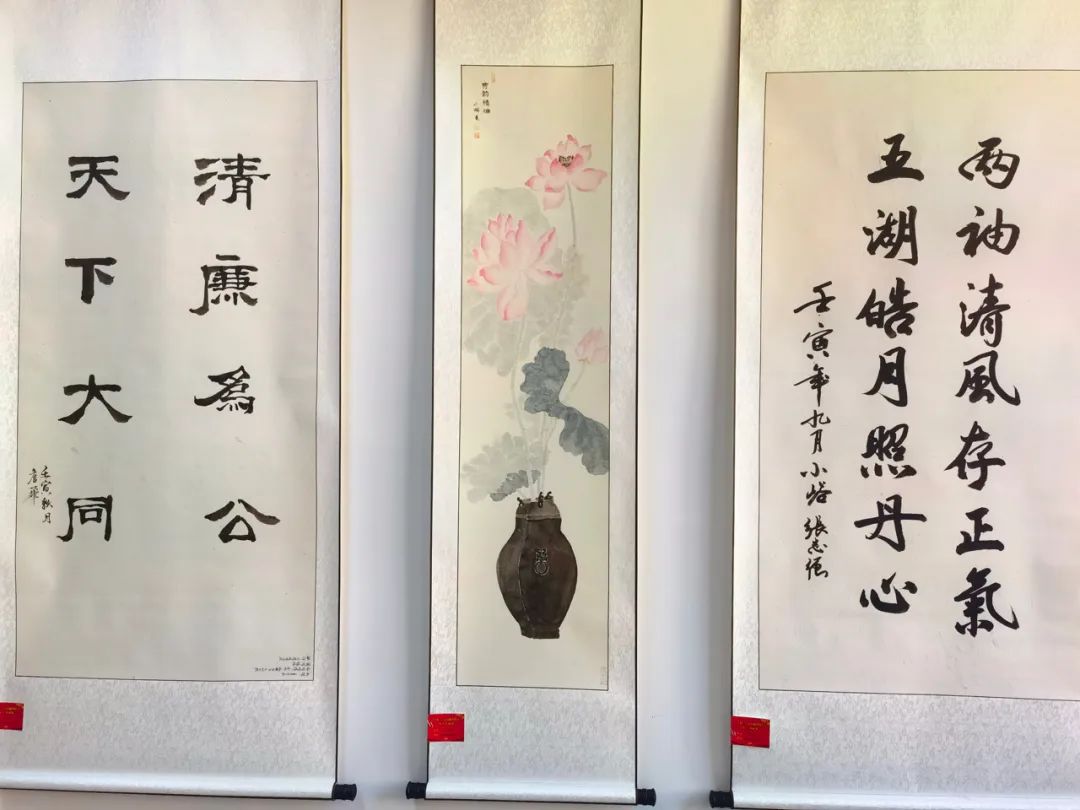 清廉為公
天下大同
壬寅秋月
两袖清風存正氣
五湖皓月照丹心
壬寅年九月小峪張志強